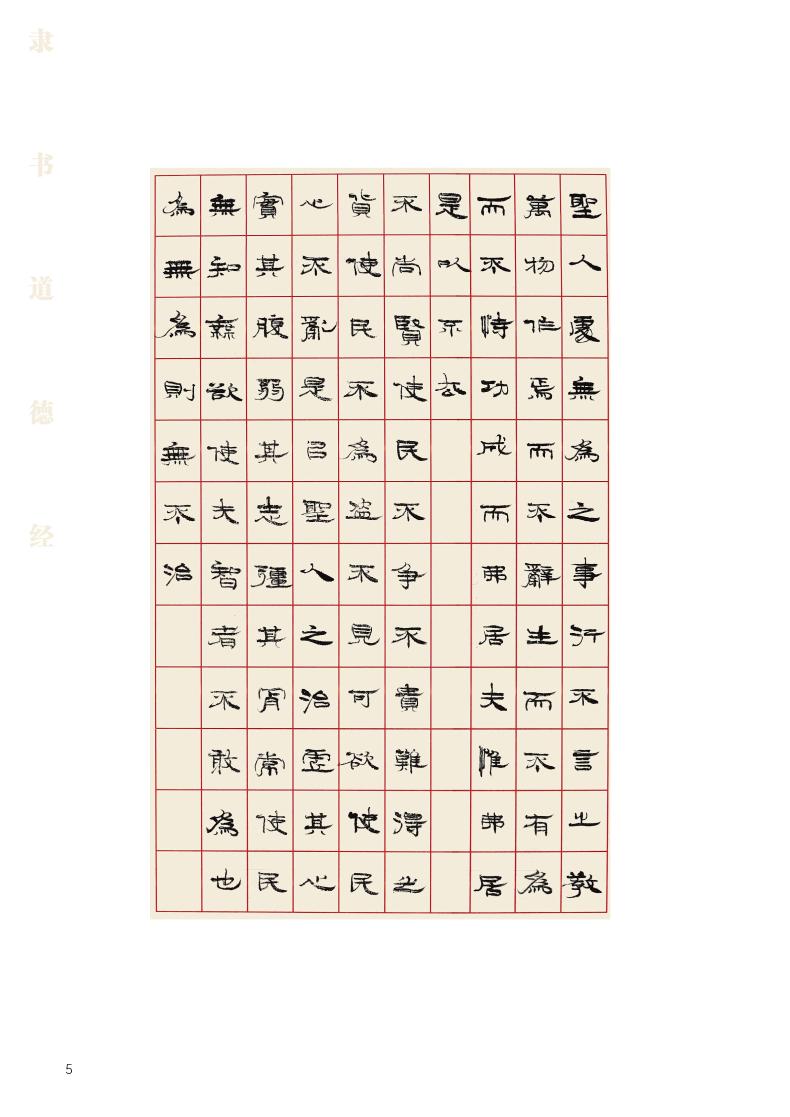 隶书道德经
聖人處無為之事行不言之教
萬物作焉而不辭生而不有為
而不恃功成而弗居夫惟弗居
是以不去
不尚賢使民不争不貴難得之
貨使民不為盜不見可欲使民
心不亂是㠯聖人之治虛其心
實其腹弱其志彊其骨常使民
無知無欲使夫智者不敢為也
為無為則無不治
5